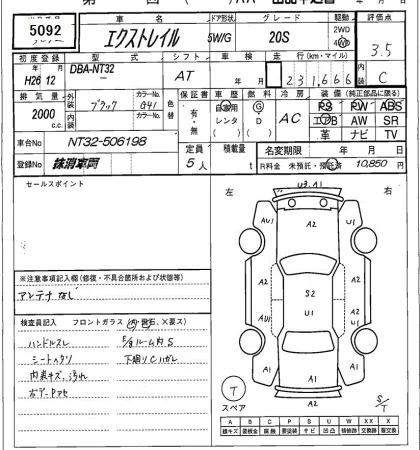 5092
車名 ドア形状 グレード 駆動 評価点
エクストレイル 5W/G 20S 2WD 4WD 3.5
初度登録 型式 シフト 車検 走行(km・マイル) 内装
H26 12 DBA-NT32 AT 年 月 231,666 C
排気量 外装 カラーNo. 色替 保証書 車歴 燃料 冷房 装備(純正部品に限る)
2000 c.c. ブラック G41 有・無 自家用 レンタ G・D AC PS PW ABS
内装 カラーNo. エアB AW SR
革 ナビ TV
車台No NT32-506198 定員 積載量 名変期限 年 月 日
登録No 抹消車両 5人 t R料金 未預託・預託済 10,850円
セールスポイント
左 右
U3 A1
A2
AU1 U1
A2 A2
S2
U1
AU1 A2
A1 A2 A1
※注意事項記入欄(修復・不具合箇所および状態等)
アンテナなし
検査員記入 フロントガラス
ハンドルスレ E/gルーム内S
シートヘタリ 下廻りCハガレ
内装キズ、汚れ
ボデー
T
スペア
S/T
A B C P S U W X XX
線キズ